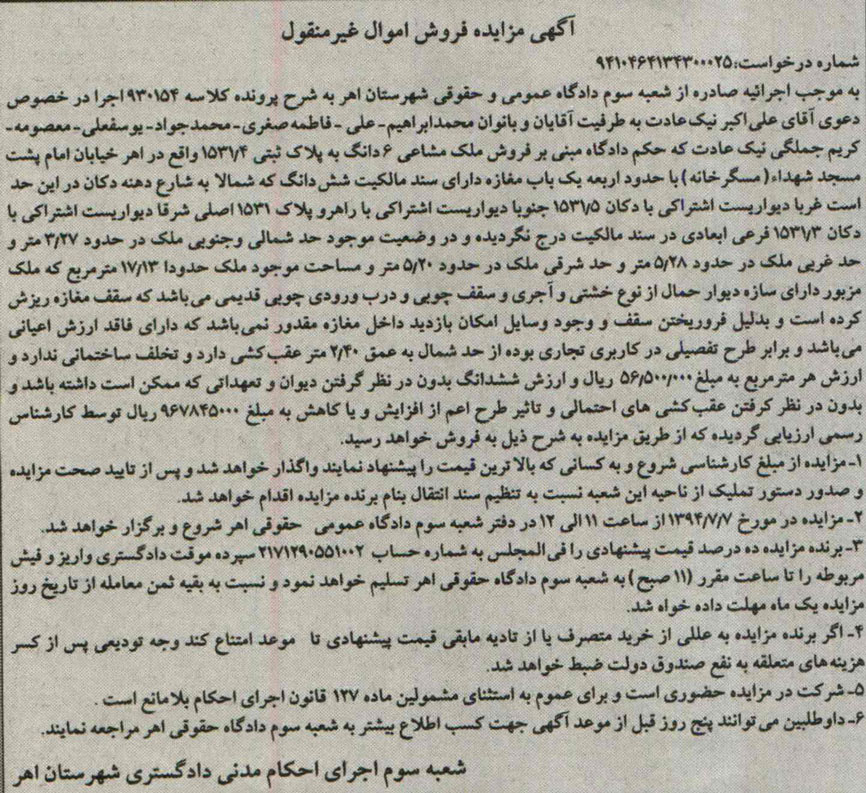 آگهی مزایده فروش اموال غیرمنقول
شماره درخواست:۹۴۱۰۴۶۴۱۳۴۳۰۰۰۲۵
به موجب اجرائیه صادره از شعبه سوم دادگاه عمومی و حقوقی شهرستان اهر به شرح پرونده کلاسه ۹۳۰۱۵۴ اجرا در خصوص
دعوی آقای علی‌اکبر نیک‌عادت به طرفیت آقایان و بانوان محمدابراهیم-علی -فاطمه‌صغری-محمدجواد-یوسفعلی-معصومه-
کریم جملگی نیک عادت که حکم دادگاه مبنی بر فروش ملک مشاعی ۶دانگ به پلاک ثبتی ۱۵۳۱/۴ واقع در اهر خیابان امام پشت
مسجد شهداء(مسگرخانه)با حدود اربعه یک باب مغازه دارای سند مالکیت شش‌دانگ که شمالا به شارع دهنه دکان در این حد
است غربا دیواریست اشتراکی با دکان ۱۵۳۱/۵ جنوبا دیواریست اشتراکی با راهرو پلاک ۱۵۳۱ اصلی شرقا دیواریست اشتراکی با
دکان ۱۵۳۱/۳ فرعی ابعادی در سند مالکیت درج نگردیده و در وضعیت موجود حد شمالی وجنوبی ملک در حدود ۳/۲۷ متر و
حد غربی ملک در حدود ۵/۲۸ متر و حد شرقی ملک در حدود ۵/۲۰ متر و مساحت موجود ملک حدودا ۱۷/۱۳ مترمربع که ملک
مزبور دارای سازه دیوار حمال از نوع خشتی و آجری و سقف چوبی و درب ورودی چوبی قدیمی می‌باشد که سقف مغازه ریزش
کرده است و بدلیل فروریختن سقف و وجود وسایل امکان بازدید داخل مغازه مقدور نمی‌باشد که دارای فاقد ارزش اعیانی
می‌باشد و برابر طرح تفصیلی در کاربری تجاری بوده از حد شمال به عمق ۲/۴۰ متر عقب‌کشی دارد و تخلف ساختمانی ندارد و
ارزش هر مترمربع به مبلغ ۵۶/۵۰۰/۰۰۰ ریال و ارزش ششدانگ بدون در نظر گرفتن دیوان و تعهداتی که ممکن است داشته باشد و
بدون در نظر گرفتن عقب‌کشی های احتمالی و تاثیر طرح اعم از افزایش و یا کاهش به مبلغ ۹۶۷۸۴۵۰۰۰ ریال توسط کارشناس
رسمی ارزیابی گردیده که از طریق مزایده به شرح ذیل به فروش خواهد رسید.
۱-مزایده از مبلغ کارشناسی شروع و به کسانی که بالا ترین قیمت را پیشنهاد نمایند واگذار خواهد شد و پس از تایید صحت مزایده
و صدور دستور تملیک از ناحیه این شعبه نسبت به تنظیم سند انتقال بنام برنده مزایده اقدام خواهد شد.
۲-مزایده در مورخ ۱۳۹۴/۷/۷ از ساعت ۱۱ الی ۱۲ در دفتر شعبه سوم دادگاه عمومی حقوقی اهر شروع و برگزار خواهد شد.
۳-برنده مزایده ده درصد قیمت پیشنهادی را فی‌المجلس به شماره حساب ۲۱۷۱۲۹۰۵۵۱۰۰۲ سپرده موقت دادگستری واریز و فیش
مربوطه را تا ساعت مقرر (۱۱ صبح)به شعبه سوم دادگاه حقوقی اهر تسلیم خواهد نمود و نسبت به بقیه ثمن معامله از تاریخ روز
مزایده یک ماه مهلت داده خواه شد.
۴-اگر برنده مزایده به عللی از خرید متصرف یا از تادیه مابقی قیمت پیشنهادی تا موعد امتناع کند وجه تودیعی پس از کسر
هزینه‌های متعلقه به نفع صندوق دولت ضبط خواهد شد.
۵-شرکت در مزایده حضوری است و برای عموم به استثنای مشمولین ماده ۱۲۷ قانون اجرای احکام بلامانع است .
۶-داوطلبین می‌توانند پنج روز قبل از موعد آگهی جهت کسب اطلاع بیشتر به شعبه سوم دادگاه حقوقی اهر مراجعه نمایند.
شعبه سوم اجرای احکام مدنی دادگستری شهرستان اهر